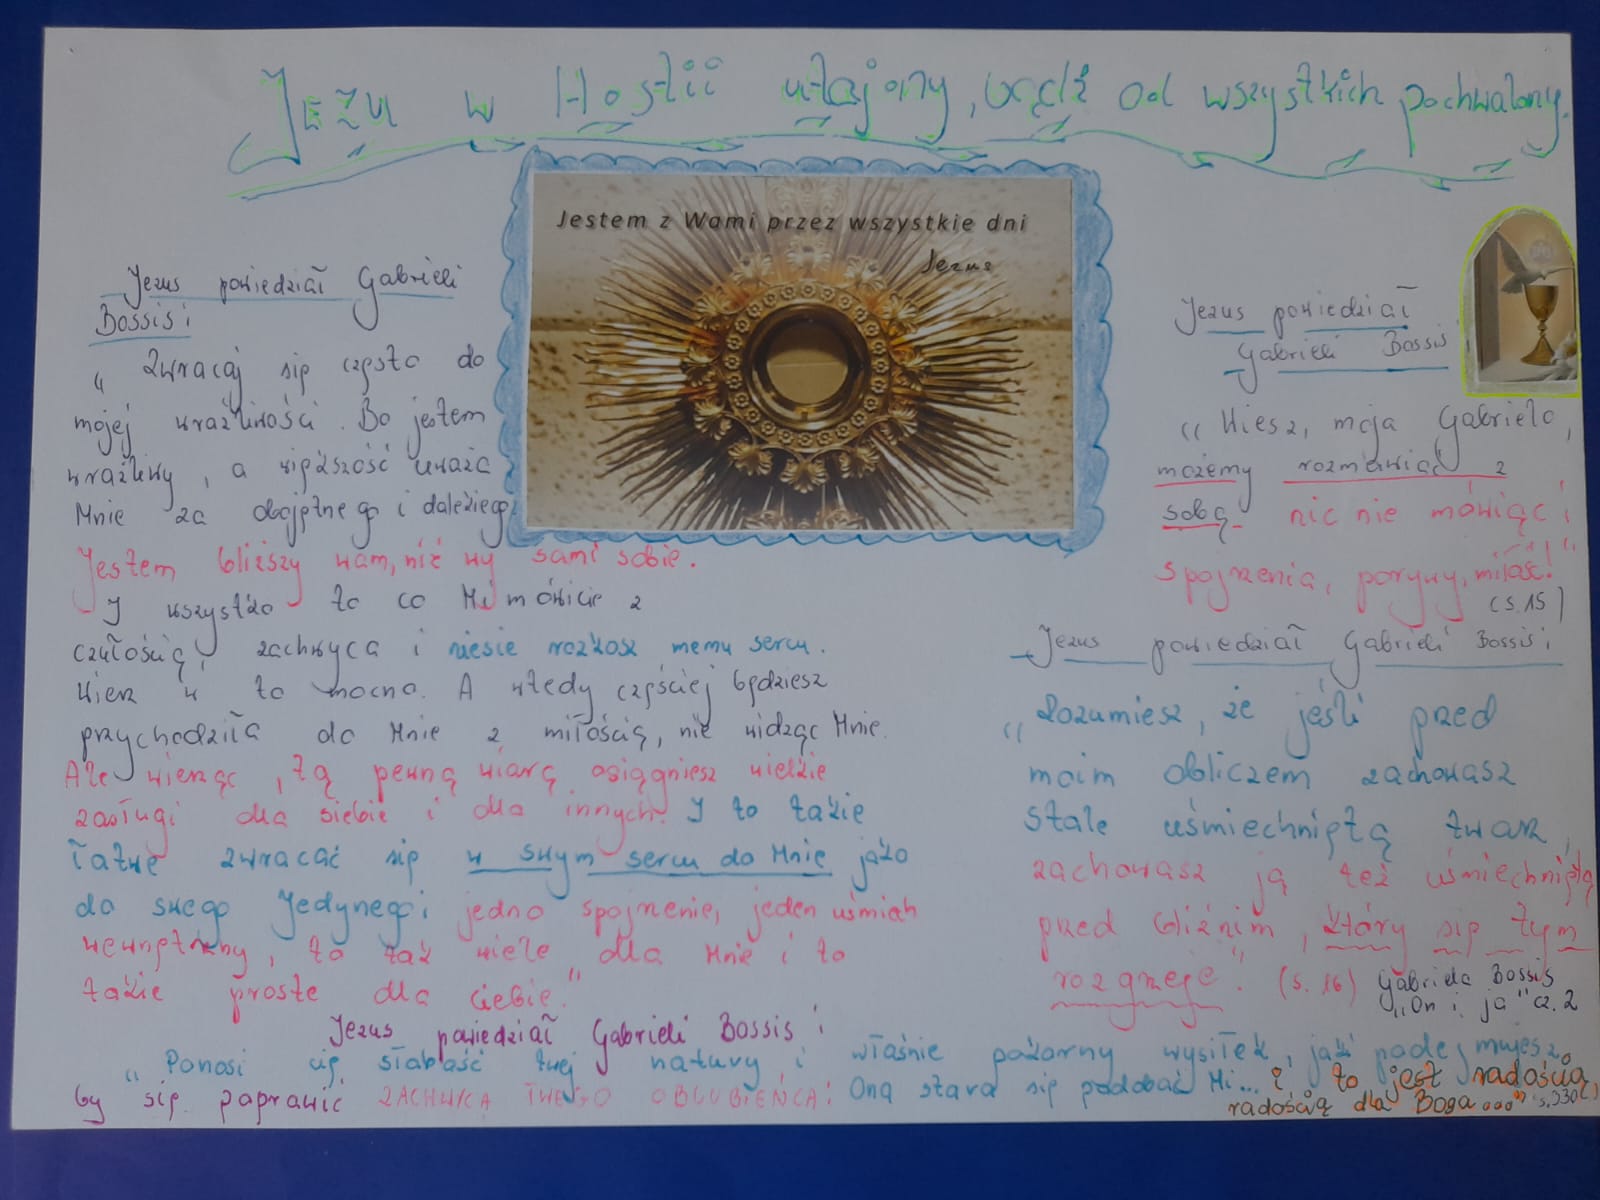 Jezu w Hostii utajony, bądź od wszystkich pochwalony.
Jestem z Wami przez wszystkie dni
Jezus
Jezus powiedział Gabrieli
Bossis:
„Zwracaj się często do
mojej wrażliwości. Bo jestem
wrażliwy, a większość uważa
Mnie za obojętnego i dalekiego
Jestem bliższy wam, niż wy sami sobie.
I wszystko to co Mi mówicie z
czułością, zachwyca i niesie rozkosz memu sercu.
Wierz w to mocno. A wtedy częściej będziesz
przychodziła do Mnie z miłością, nie widząc Mnie.
Ale wierząc, tą pewną wiarą osiągniesz wielkie
zasługi dla siebie i dla innych. I to takie
łatwe zwracać się w swym sercu do Mnie jako
do swego Jedynego: jedno spojrzenie, jeden uśmiech
wewnętrzny, to tak wiele dla Mnie i to
takie proste dla ciebie."
Jezus powiedział
Gabrieli Bossis
„Wiesz, moja Gabrielo,
możemy rozmawiać z
sobą nic nie mówiąc:
spojrzenia, porywy, miłość!"
(s. 15)
Jezus powiedział Gabrieli Bossis:
„Rozumiesz, że jeśli przed
moim obliczem zachowasz
stale uśmiechniętą twarz,
zachowasz ją też uśmiechniętą
przed bliźnim, który się tym
rozgrzeje". (s. 16) Gabriela Bossis
„On i ja" cz. 2
Jezus powiedział Gabrieli Bossis:
„Ponosi cię słabość twej natury, i właśnie pokorny wysiłek, jaki podejmujesz,
by się poprawić ZACHWYCA TWEGO OBLUBIEŃCA: Ona stara się podobać Mi... i to jest radością,
radością dla Boga..."